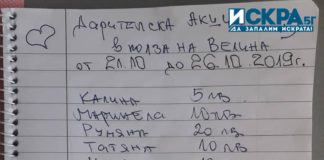 ДАРИТЕЛСКА АКЦ
ИСКРА.БГ
ДА ЗАПАЛИМ ИСКРАТА!
В ПОЛЗА НА ВЕЛИНА
ОТ 21.10 ДО 26.10.2019г.
КАЛИНА 5 ЛВ
МАРИНЕЛА 10 ЛВ
РУМЯНА 20 ЛВ
ТАТЯНА 10 ЛВ